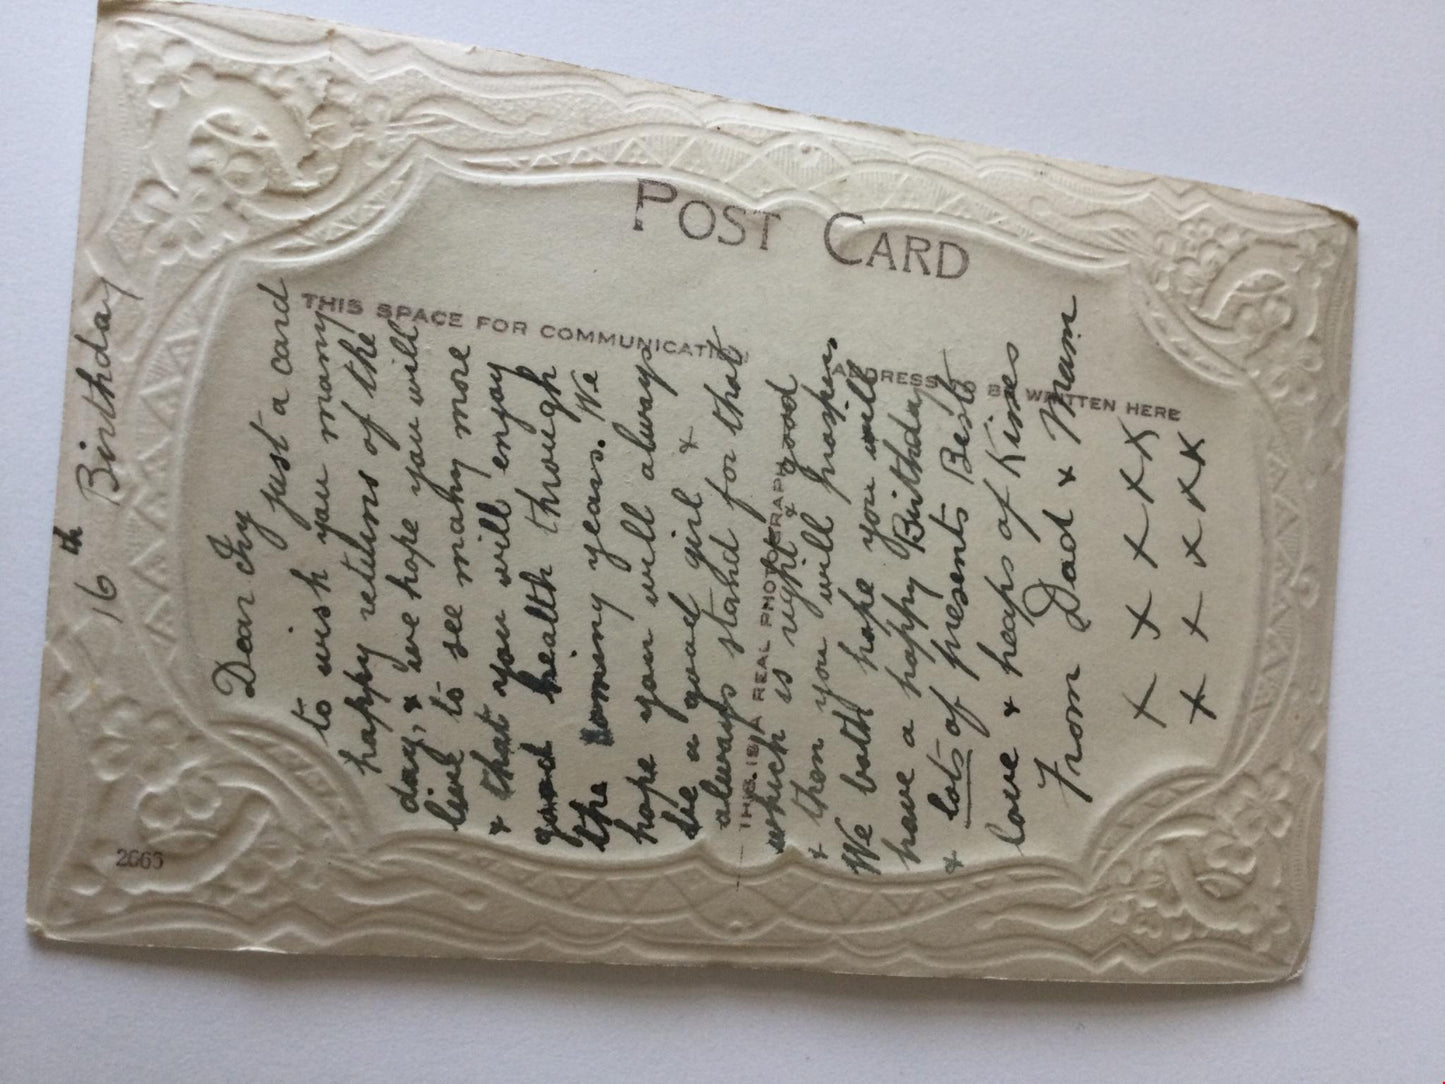 16th Birthday
POST CARD
THIS SPACE FOR COMMUNICATION
ADDRESS TO BE WRITTEN HERE
THIS IS A REAL PHOTOGRAPH
2665
Dear Ivy
just a card
to wish you many
happy returns of the
day, & we hope you will
live to see many more
& that you will enjoy
good health through
the coming years. We
hope you will always
be a good girl &
always stand for that
which is right & good
& then you will prosper,
We both hope you will
have a happy Birthday
& lots of presents Best
love & heaps of Kisses
From Dad & Mam
X X X X X
X X X X X